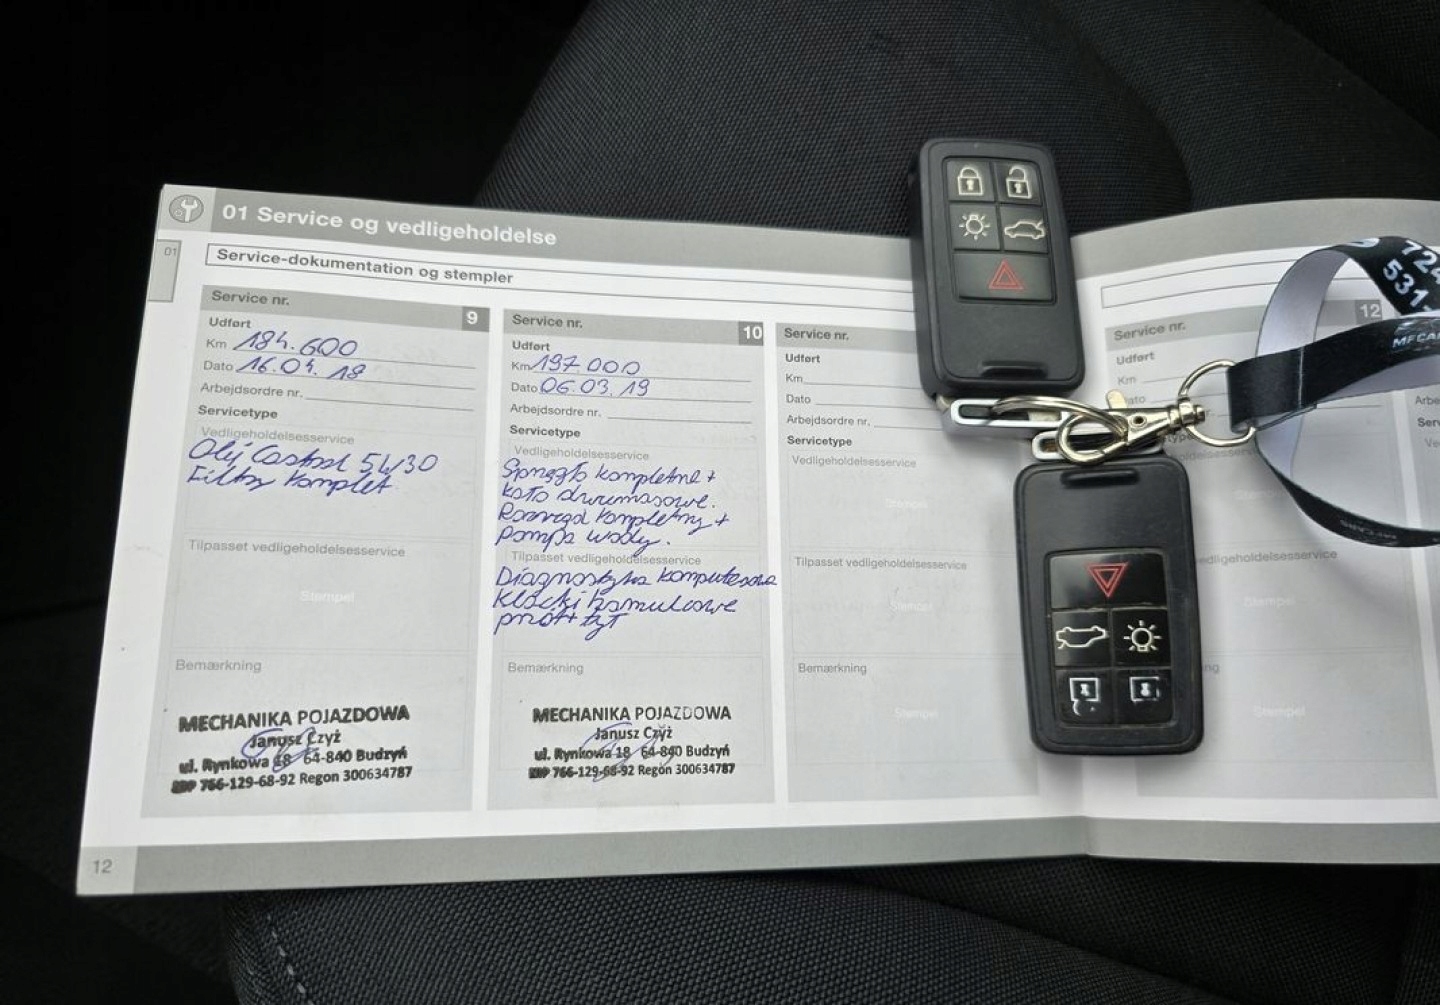 01 Service og vedligeholdelse
01
Service-dokumentation og stempler
Service nr. 9
Udført
Km 184.600
Dato 16.04.18
Arbejdsordre nr.
Servicetype
Vedligeholdelsesservice
Olej Castrol 5W30
Filtry komplet
Tilpasset vedligeholdelsesservice
Stempel
Bemærkning
MECHANIKA POJAZDOWA
Janusz Czyż
ul. Rynkowa 18 64-840 Budzyń
NIP 766-129-68-92 Regon 300634787
12
Service nr. 10
Udført
Km 197.000
Dato 06.03.19
Arbejdsordre nr.
Servicetype
Vedligeholdelsesservice
Sprzęgło kompletne +
koło dwumasowe.
Rozrząd kompletny +
pompa wody.
Tilpasset vedligeholdelsesservice
Diagnostyka komputerowa
klocki hamulcowe
przód + tył
Bemærkning
MECHANIKA POJAZDOWA
Janusz Czyż
ul. Rynkowa 18 64-840 Budzyń
NIP 766-129-68-92 Regon 300634787
Service nr.
Udført
Km
Dato
Arbejdsordre nr.
Servicetype
Vedligeholdelsesservice
Stempel
Tilpasset vedligeholdelsesservice
Stempel
Bemærkning
Stempel
Service nr. 12
Udført
Km
Dato
vedligeholdelsesservice
Stempel
Stempel
724
531-